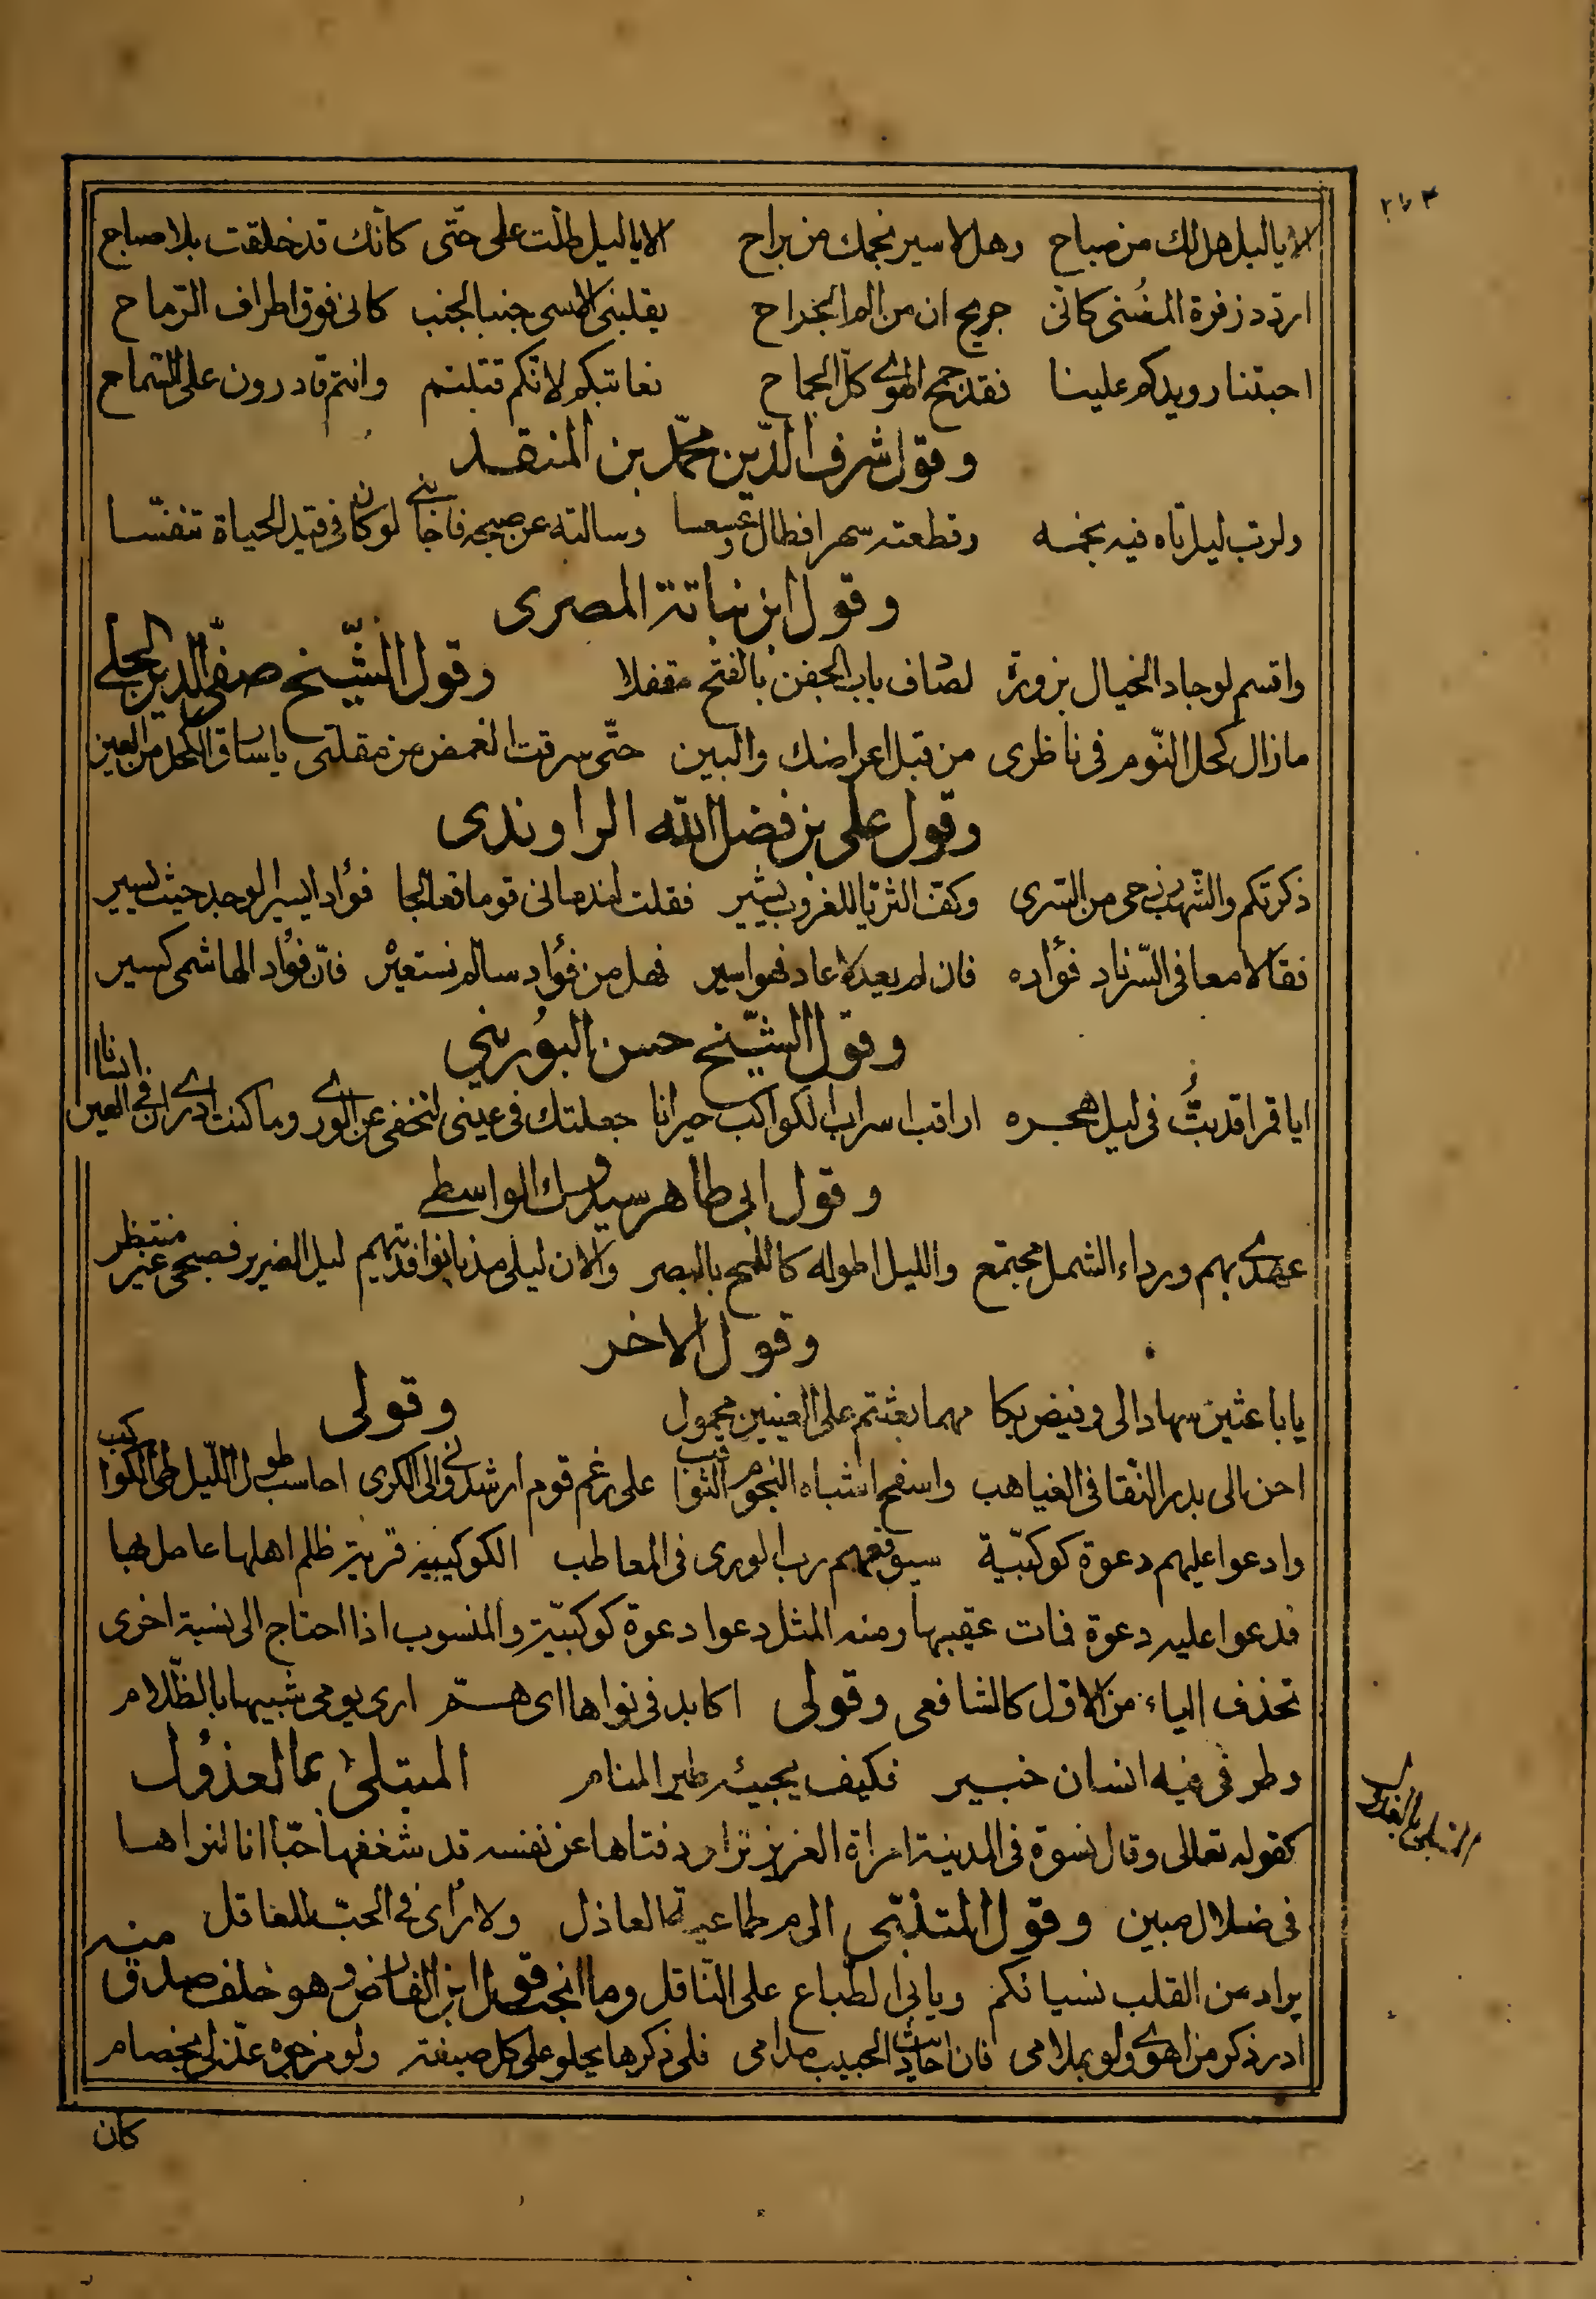 الا يا ليل هل لك من صباح وهل لاسير نجمك من براح الا يا ليل طلت على حتّى كانّك قد خلقت بلا صباح
اردّد زفرة المضنى كانّى جريح ان من الم الجراح يقلبنى الاسى جنبا لجنب كانى فوق اطراف الرّماح
احبتنا رويدكم علينا فقد جمح الهوى كلّ الجماح نعاتبكم لانّكم قتلتم وانتم قادرون على السّماح
وقول شرف الدّين محمّد بن المنقذ
ولربّ ليل تاه فيه نجمه وقطعته سهرا فطال وعسعسا وسالته عن صبحه فاجابنى لو كان فى قيد الحياة تنفّسا
وقول ابن نباتة المصرى
واقسم لو جاد الخيال بزورة لصادف باب الجفن بالفتح مقفلا وقول الشّيخ صفّى الدين الحلى
ما زال كحل النّوم فى ناظرى من قبل اعراضك والبين حتّى سرقت الغمض من مقلتى يا سارق الكحل من العين
وقول على بن فضل الله الراوندى
ذكرتكم والشّهب من السرى وكفّ الثريّا للغروب يشير فقلت فؤاد اسير الوجد حيث يسير
فقالا معا فؤاده فان لم يعد فهو اسير فهل من فؤاد سالم نستعيره فانّ فؤاد الهاشمى كسير
وقول الشّيخ حسن البُورينى
ايا قمرا قد بتُّ فى ليل هجره اراقب اسراب الكواكب حيرانا جعلتك فى عينى لتخفى عن الورى وما كنت ادرى ان فى العين انسانا
وقول ابى طاهر سيدوك الواسطى
عهدى بهم ورداء الشمل مجتمع والليل اطوله كاللمح بالبصر والان ليلى مذ بانوا فديتهم ليل الضرير فصبحى غير منتظر
وقول الاخر
يا باعثين سهادا لى وفيض بكا مهما بعثتم على العينين محمول وقولى
احن الى بدر النّقا فى الغياهب واسفح اشباه النجوم الثواقب على رغم قوم ارشدونى الى الكرى احاسب طول اللّيل الكواكب
وادعوا عليهم دعوة كوكبّية سيوقعهم ربّ الورى فى المعاطب الكوكبية قرية ظلم اهلها عامل بها
فدعوا عليه دعوة فمات عقيبها ومنه المثل دعوا دعوة كوكبيّة والمنسوب اذا احتاج الى نسبة اخرى
تحذف الياء من الاوّل كالشافعى وقولى اكابد فى نواها اى همّ ارى يومى شبيها بالظّلام
وطرفى فيه انسان خبير فكيف يجيئه طير المنام المبتلى بالعذول
كقوله تعالى وقال نسوة فى المدينة امراة العزيز تراود فتاها عن نفسه قد شغفها حبّا انا لنراها
فى ضلال مبين وقول المتنبّى الام طماعية العاذل ولا رأى فى الحبّ للعاقل
يراد من القلب نسيانكم ويابى الطّباع على النّاقل وما اعجب قول ابن الفارض وهو خلف صدق منه
ادر ذكر من اهوى ولو بملامى فان احاديث الحبيب مدامى فلى ذكرها يحلو على كلّ صيغة ولو مزجوه عذّلى بخصام
كان
المبتلى بالعذول